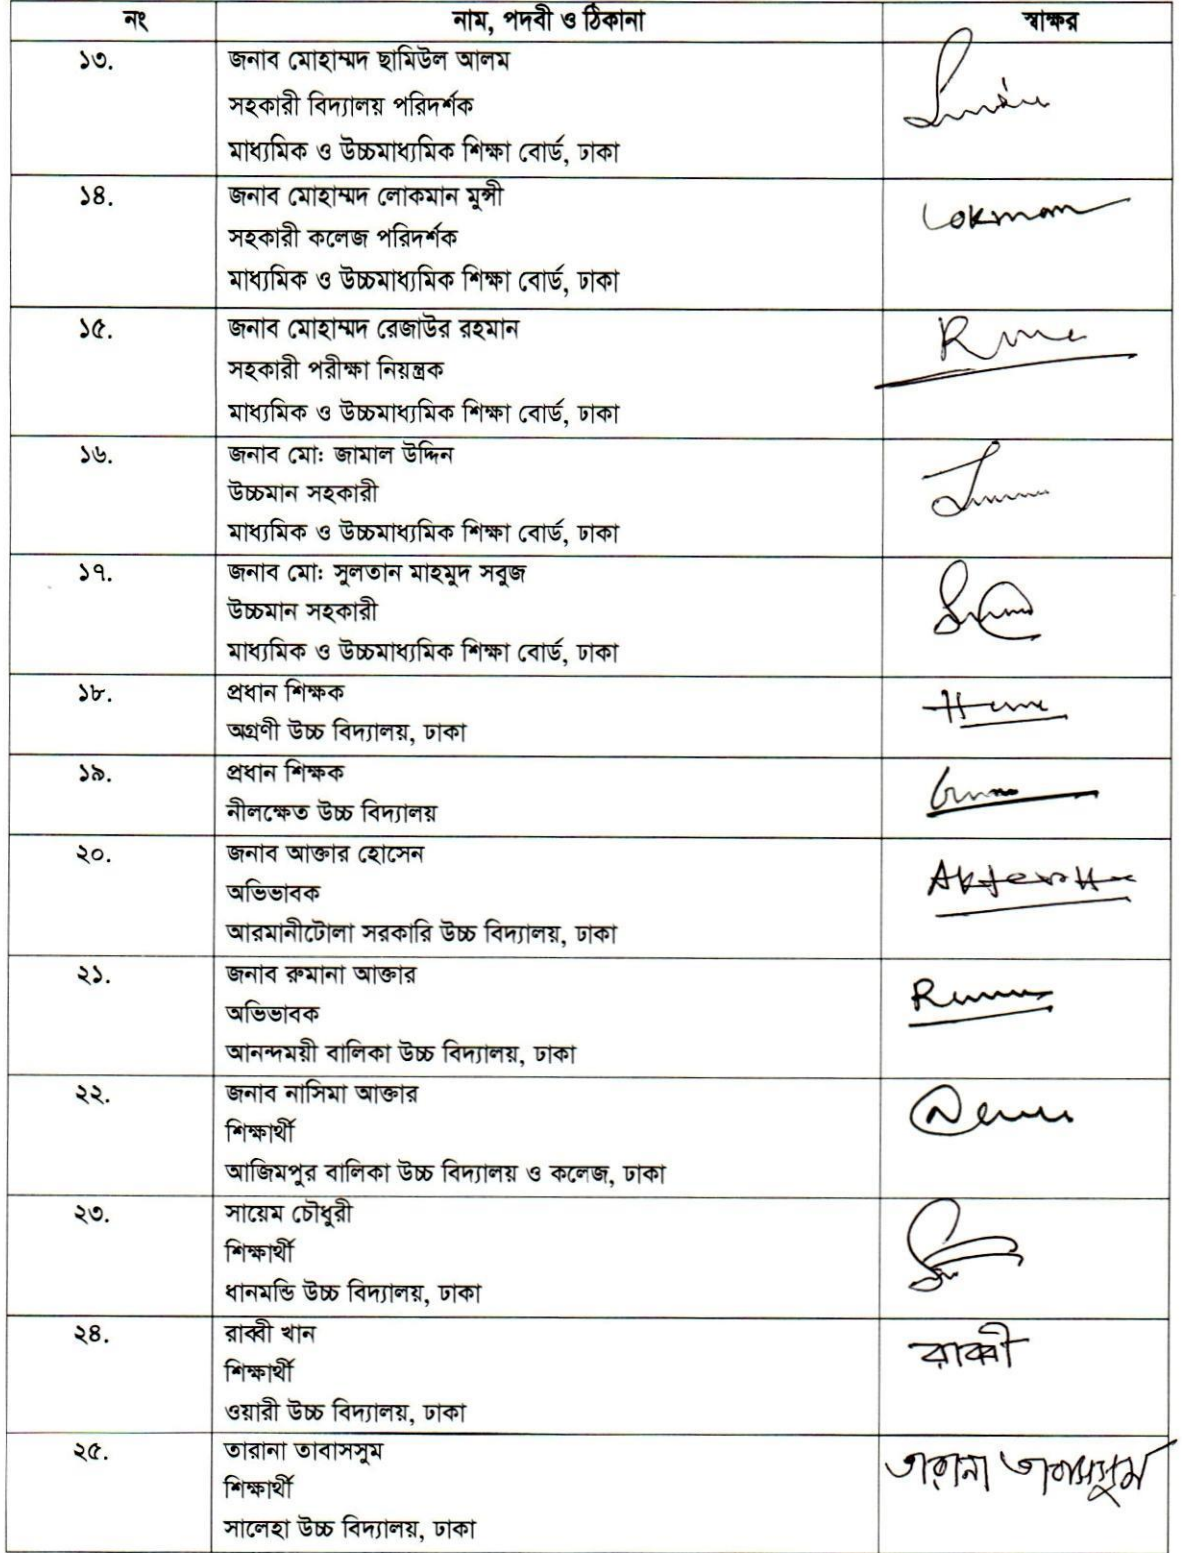 নং নাম, পদবী ও ঠিকানা স্বাক্ষর
১৩. জনাব মোহাম্মদ ছামিউল আলম
সহকারী বিদ্যালয় পরিদর্শক
মাধ্যমিক ও উচ্চমাধ্যমিক শিক্ষা বোর্ড, ঢাকা
১৪. জনাব মোহাম্মদ লোকমান মুন্সী
সহকারী কলেজ পরিদর্শক
মাধ্যমিক ও উচ্চমাধ্যমিক শিক্ষা বোর্ড, ঢাকা
Lokman
১৫. জনাব মোহাম্মদ রেজাউর রহমান
সহকারী পরীক্ষা নিয়ন্ত্রক
মাধ্যমিক ও উচ্চমাধ্যমিক শিক্ষা বোর্ড, ঢাকা
১৬. জনাব মো: জামাল উদ্দিন
উচ্চমান সহকারী
মাধ্যমিক ও উচ্চমাধ্যমিক শিক্ষা বোর্ড, ঢাকা
১৭. জনাব মো: সুলতান মাহমুদ সবুজ
উচ্চমান সহকারী
মাধ্যমিক ও উচ্চমাধ্যমিক শিক্ষা বোর্ড, ঢাকা
১৮. প্রধান শিক্ষক
অগ্রণী উচ্চ বিদ্যালয়, ঢাকা
১৯. প্রধান শিক্ষক
নীলক্ষেত উচ্চ বিদ্যালয়
২০. জনাব আক্তার হোসেন
অভিভাবক
আরমানীটোলা সরকারি উচ্চ বিদ্যালয়, ঢাকা
২১. জনাব রুমানা আক্তার
অভিভাবক
আনন্দময়ী বালিকা উচ্চ বিদ্যালয়, ঢাকা
২২. জনাব নাসিমা আক্তার
শিক্ষার্থী
আজিমপুর বালিকা উচ্চ বিদ্যালয় ও কলেজ, ঢাকা
২৩. সায়েম চৌধুরী
শিক্ষার্থী
ধানমন্ডি উচ্চ বিদ্যালয়, ঢাকা
২৪. রাব্বী খান
শিক্ষার্থী
ওয়ারী উচ্চ বিদ্যালয়, ঢাকা
রাব্বী
২৫. তারানা তাবাসসুম
শিক্ষার্থী
সালেহা উচ্চ বিদ্যালয়, ঢাকা
তারানা তাবাসসুম